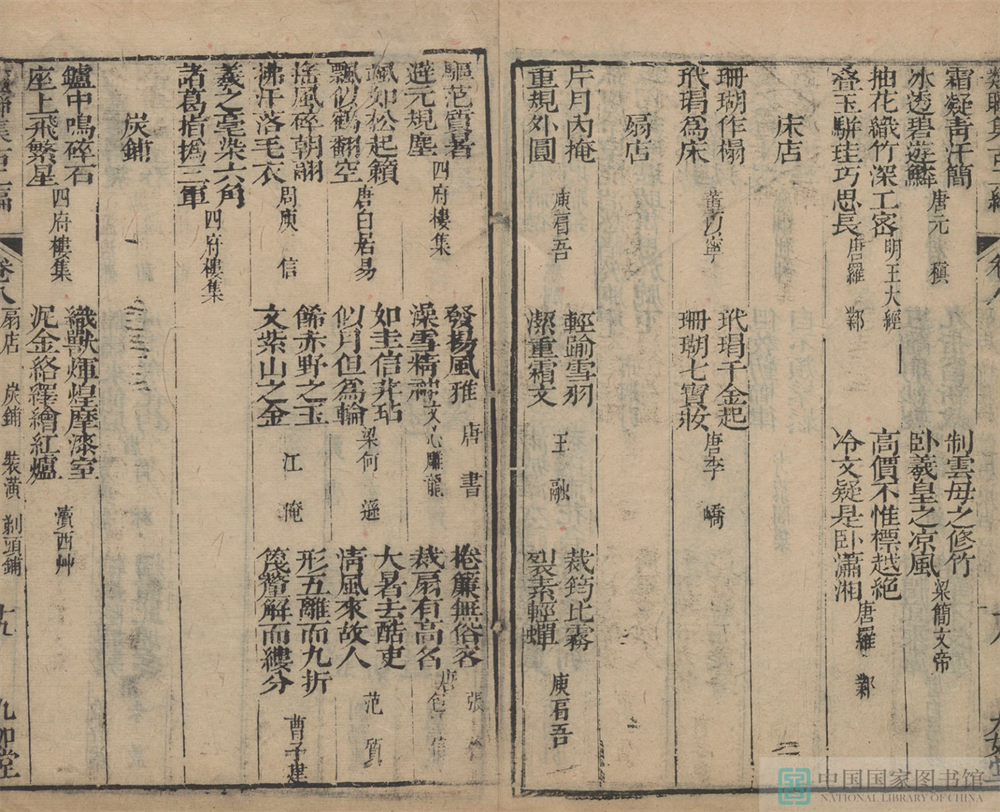 霜凝青汗簡
冰透碧遊鱗 唐元稹
制雲母之修竹
卧羲皇之凉風 梁簡文帝
抽花織竹深工密 明王大經
高價不惟標越絶
叠玉駢珪巧思長 唐羅鄴
冷文疑是卧瀟湘 唐羅鄴
床店
珊瑚作榻
玳瑁爲床
玳瑁千金起
珊瑚七寶妝 唐李嶠
扇店
片月内掩
重規外圓 庾肩吾
輕踰雪羽
潔重霜文 王融
裁筠比霧
裂素輕蟬 庾肩吾
驅范質暑
避元規塵 四府樓集
發揚風雅 唐書
澡雪精神 文心雕龍
捲簾無俗客
裁扇有高名
颯如松起籟
飄似鶴翻空 唐白居易
如圭信非玷
似月但爲輪 梁何遜
大暑去酷吏
清風來故人 范質
摇風碎朝翮
拂汗落毛衣 周庾信
飾赤野之玉
文紫山之金 江俺
形五離而九折
篾釐解而縷分 曹子建
羲之毫染六角
諸葛指撝三軍 四府樓集
炭鋪
鑪中鳴碎石
座上飛繁星 四府樓集
織獸煇煌摩漆室
泥金絡繹繪紅爐 瀆西艸
卷八 扇店 炭鋪 裝潢 剃頭鋪 十九 九如堂
中国国家图书馆
NATIONAL LIBRARY OF CHINA